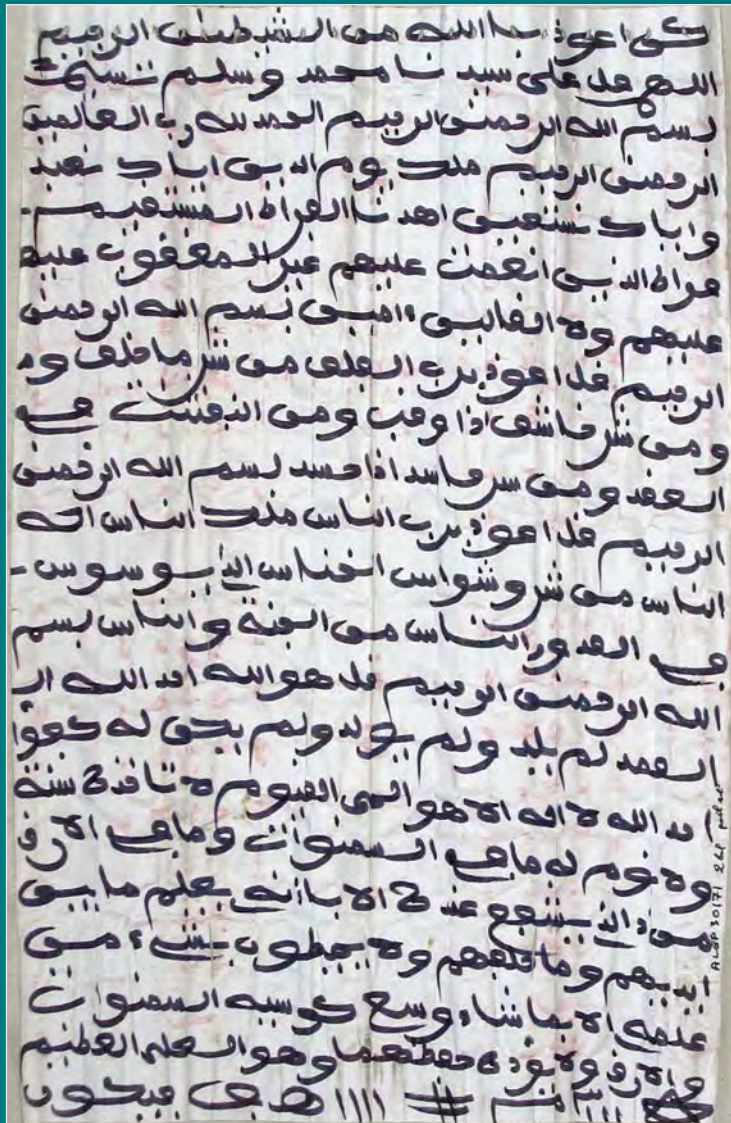 كى اعوذ باالله من الشيطن الرجيم
اللهم صل على سيدنا محمد وسلم تسليما
بسم الله الرحمن الرحيم الحمد لله رب العالمين
الرحمن الرحيم ملك يوم الدين اياك نعبد
واياك نستعين اهدنا الصراط المستقيم
صراط الذين انعمت عليهم غير المغضوب عليه
عليهم ولا الضالين ءامين بسم الله الرحمن
الرحيم قل اعوذ برب الفلق من شر ما خلق و
ومن شر غاسق اذا وقب ومن النفثت في
العقد ومن سر حاسد اذا حسد بسم الله الرحمن
الرحيم قل اعوذ برب الناس ملك الناس اله
الناس من شر وشواس الخناس الذي يوسوس
في الصدور الناس من الجنة والناس بسم
الله الرحمن الرحيم قل هو الله احد الله ا
الصمد لم يلد ولم يولد ولم يكن له كفؤا
احد الله لا اله الا هو الحي القيوم لا تاخذه سنة
ولا نوم له ما في السموات وما في الارض
من ذا الذي يشفع عنده الا باذنه يعلم ما بين
ايديهم وما خلفهم ولا يحيطون بشيء من
علمه الا بما شاء وسع كرسيه السموات
والارض ولا يؤده حفظهما وهو العلي العظيم
فيكون
ALGP 30171